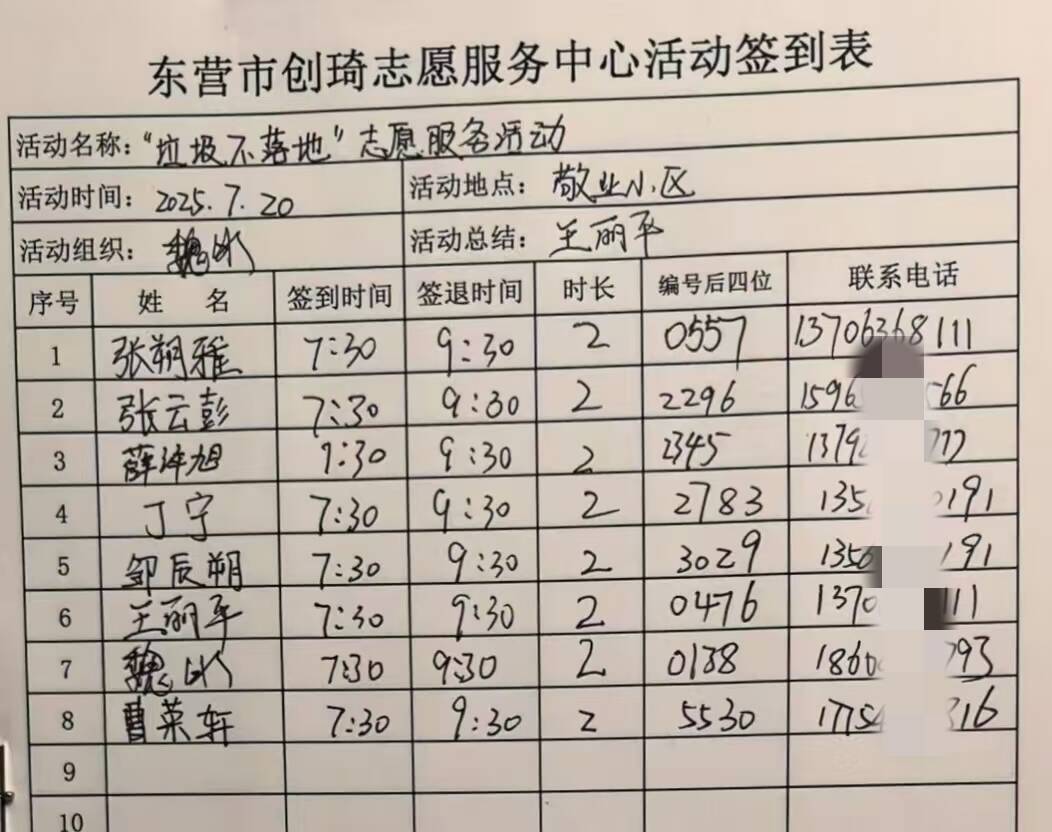 东营市创琦志愿服务中心活动签到表
活动名称："垃圾不落地"志愿服务活动
活动时间：2025.7.20 活动地点：敬业小区
活动组织：魏 活动总结：王丽平
序号 姓 名 签到时间 签退时间 时长 编号后四位 联系电话
1 张朔雅 7:30 9:30 2 0557 13706368111
2 张云彭 7:30 9:30 2 2296 1596 66
3 薛泽旭 7:30 9:30 2 2345 1379 77
4 丁宁 7:30 9:30 2 2783 135 191
5 邹辰朔 7:30 9:30 2 3029 135 191
6 王丽平 7:30 9:30 2 0476 1370 111
7 魏 7:30 9:30 2 0138 1860 793
8 曹英轩 7:30 9:30 2 5530 17754 316
9
10